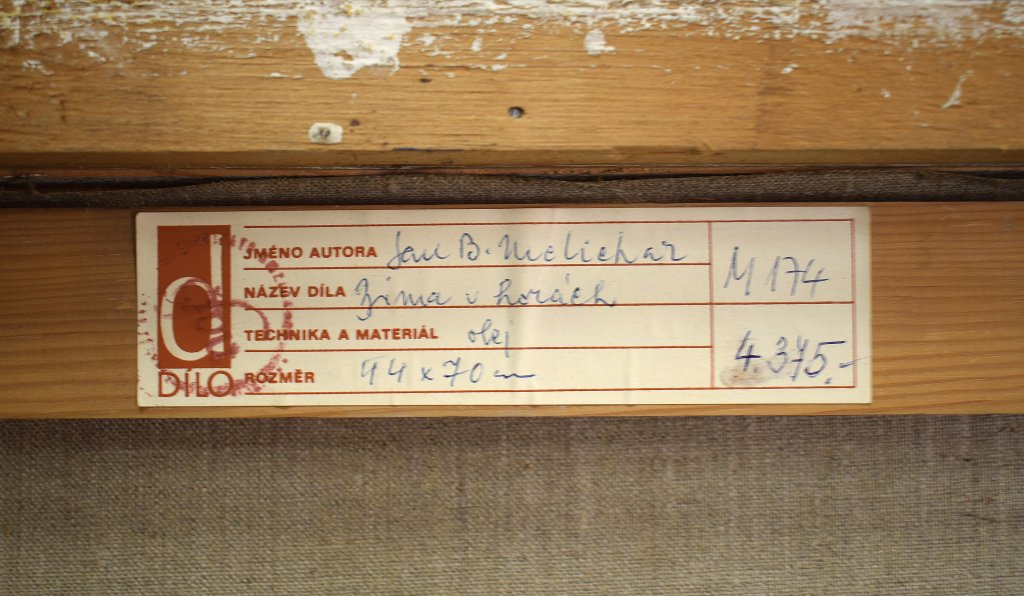 JMÉNO AUTORA Jan B. Melichar
NÁZEV DÍLA Zima v horách
M 174
TECHNIKA A MATERIÁL olej
ROZMĚR 44 x 70 cm
4.375.-
d
DÍLO